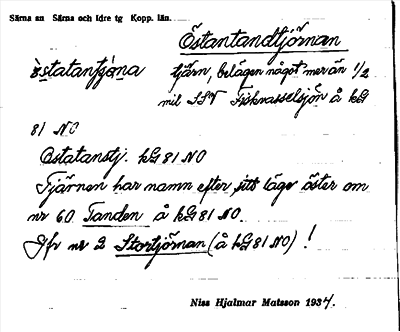 Särna sn Särna och Idre tg Kopp. län.
Östantandtjörnan
tjärn, belägen något mer än 1/2
mil SSV Fiskvasselsjön å kG
81 NO
Östatanstj. kG 81 NO
Tjärnen har namn efter sitt läge öster om
nr 60 Tanden å kG 81 NO.
Jfr nr 2 Stortjörnan (å kG 81 NO) !
Niss Hjalmar Matsson 1934.